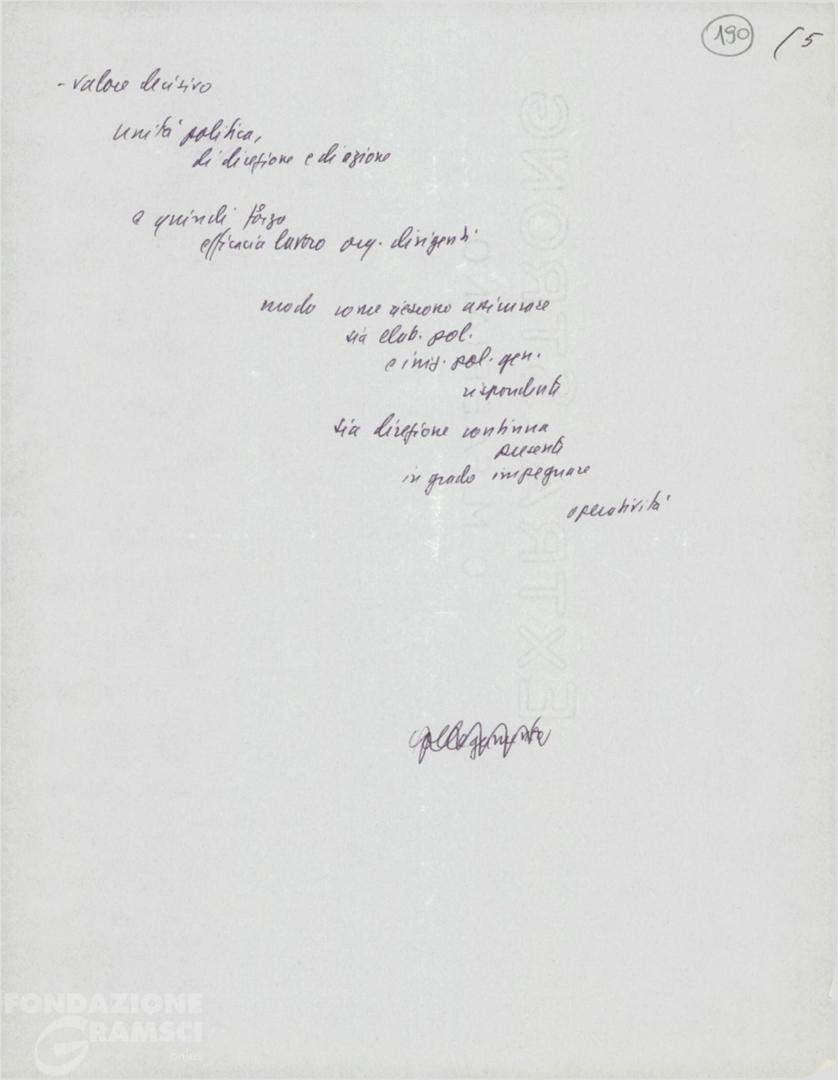 190 (5
- valore decisivo
unità politica,
di direzione e di azione
e quindi forza
efficacia lavoro org. dirigenti
modo come riescono assicurare
sia elab. pol.
e iniz. pol. gen.
rispondenti
sia direzione continua
presenti
in grado impegnare
operatività
EXTRA STRONG
FONDAZIONE
GRAMSCI
onlus